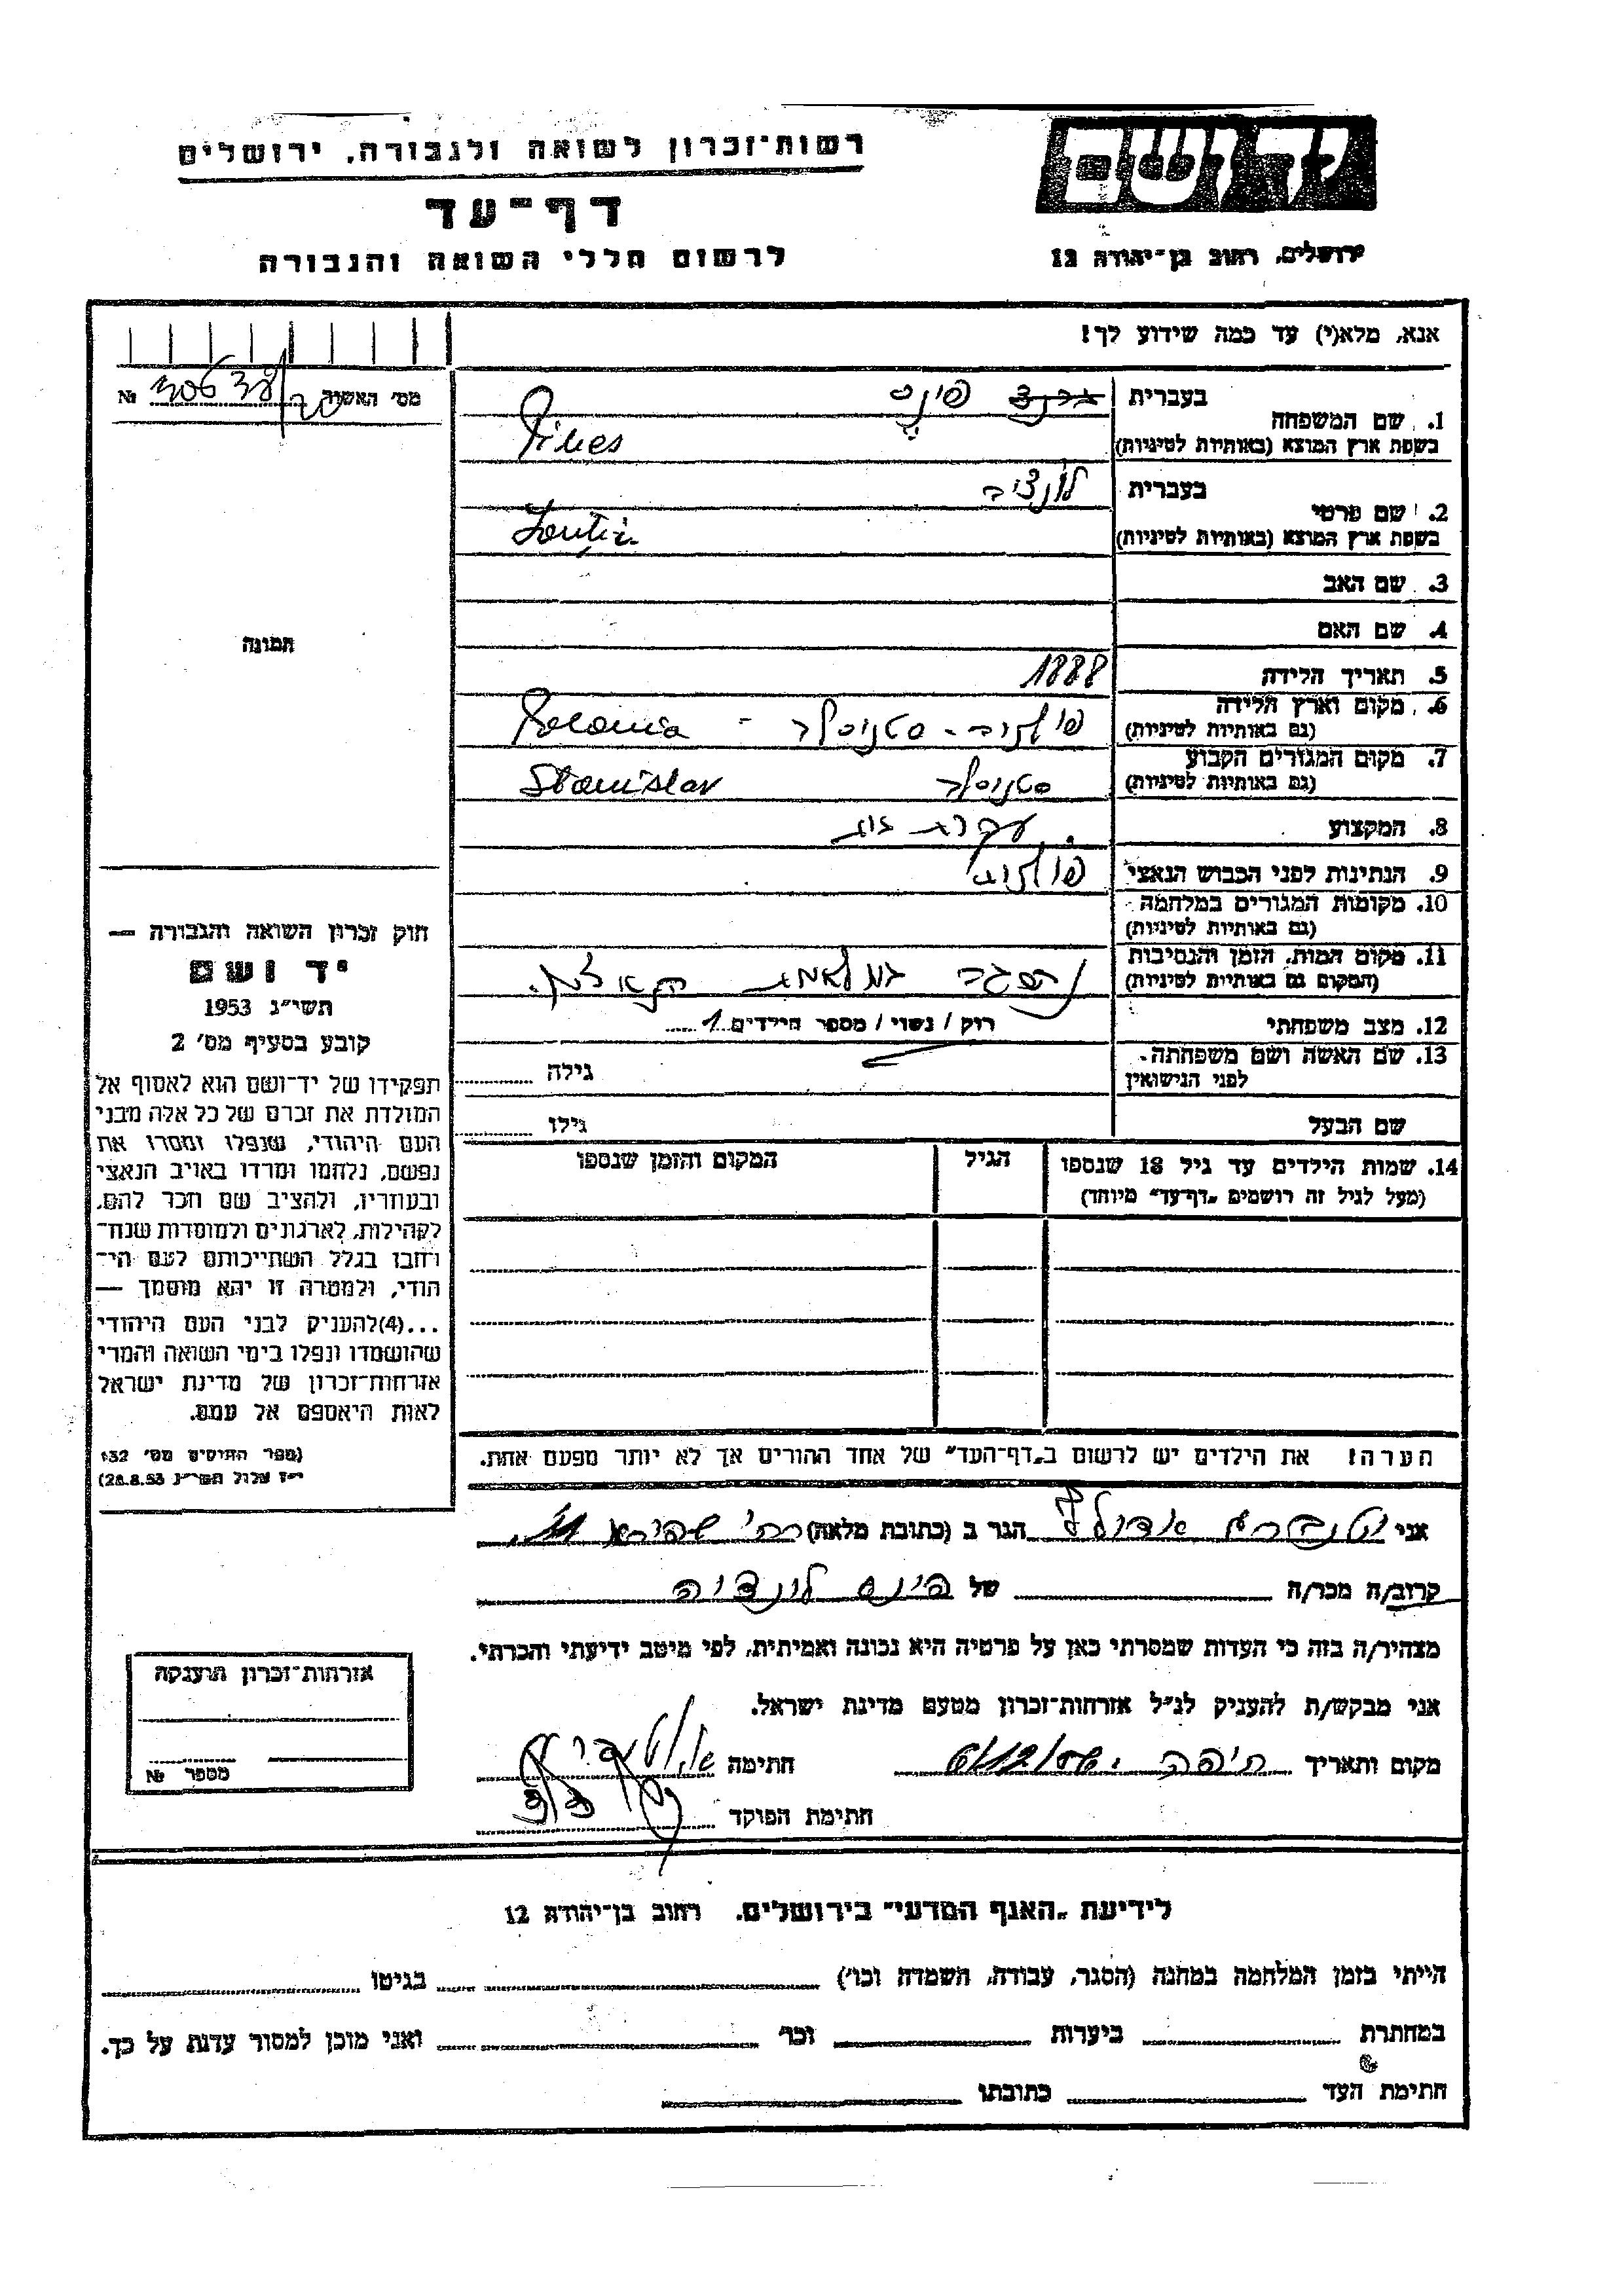 רשות־זכרון לשואה ולגבורה, ירושלים
דף־עד
לרשום חללי השואה והגבורה
יד ושם
ירושלים, רחוב בן־יהודה 12
אנא, מלא(י) עד כמה שידוע לך!
מס' האשור №
1. שם המשפחה
בעברית פינס
בשפת ארץ המוצא (באותיות לטיניות)
2. שם פרטי
בעברית
בשפת ארץ המוצא (באותיות לטיניות)
3. שם האב
4. שם האם
5. תאריך הלידה 1888
6. מקום וארץ הלידה
(גם באותיות לטיניות) פולניה - סטניסלב - Polonia
7. מקום המגורים הקבוע
(גם באותיות לטיניות) סטניסלב Stanislav
8. המקצוע עקרת בית
9. הנתינות לפני הכבוש הנאצי פולניה
10. מקומות המגורים במלחמה
(גם באותיות לטיניות)
11. מקום המות, הזמן והנסיבות
(המקום גם באותיות לטיניות)
12. מצב משפחתי רוק / נשוי / מספר הילדים 1
13. שם האשה ושם משפחתה
לפני הנישואין גילה
שם הבעל גילו
14. שמות הילדים עד גיל 18 שנספו
(מעל לגיל זה רושמים „דף־עד" מיוחד)
הגיל
המקום והזמן שנספו
הערה! את הילדים יש לרשום ב„דף־העד" של אחד ההורים אך לא יותר מפעם אחת.
תמונה
חוק זכרון השואה והגבורה —
יד ושם
תשי"ג 1953
קובע בסעיף מס' 2
תפקידו של יד־ושם הוא לאסוף אל
המולדת את זכרם של כל אלה מבני
העם היהודי, שנפלו ומסרו את
נפשם, נלחמו ומרדו באויב הנאצי
ובעוזריו, ולהציב שם וזכר להם,
לקהילות, לארגונים ולמוסדות שנח־
רחבו בגלל השתייכותם לעם הי־
הודי, ולמטרה זו יהא מוסמך —
...(4)להעניק לבני העם היהודי
שהושמדו ונפלו בימי השואה והמרי
אזרחות־זכרון של מדינת ישראל
לאות היאספם אל עמם.
(ספר החוקים מס' 132
י"ז אלול תשי"ג 28.8.53)
אני אדולף הגר ב (כתובת מלאה)
קרוב/ה מכר/ה של פינס לונציה
מצהיר/ה בזה כי העדות שמסרתי כאן על פרטיה היא נכונה ואמיתית, לפי מיטב ידיעתי והכרתי.
אני מבקש/ת להעניק לנ"ל אזרחות־זכרון מטעם מדינת ישראל.
מקום ותאריך חיפה חתימה
חתימת הפוקד
אזרחות־זכרון הוענקה
מספר №
לידיעת „האגף המדעי" בירושלים. רחוב בן־יהודה 12
הייתי בזמן המלחמה במחנה (הסגר, עבודה, השמדה וכו') בגיטו
במחתרת ביערות וכו' ואני מוכן למסור עדות על כך.
חתימת העד כתובתו